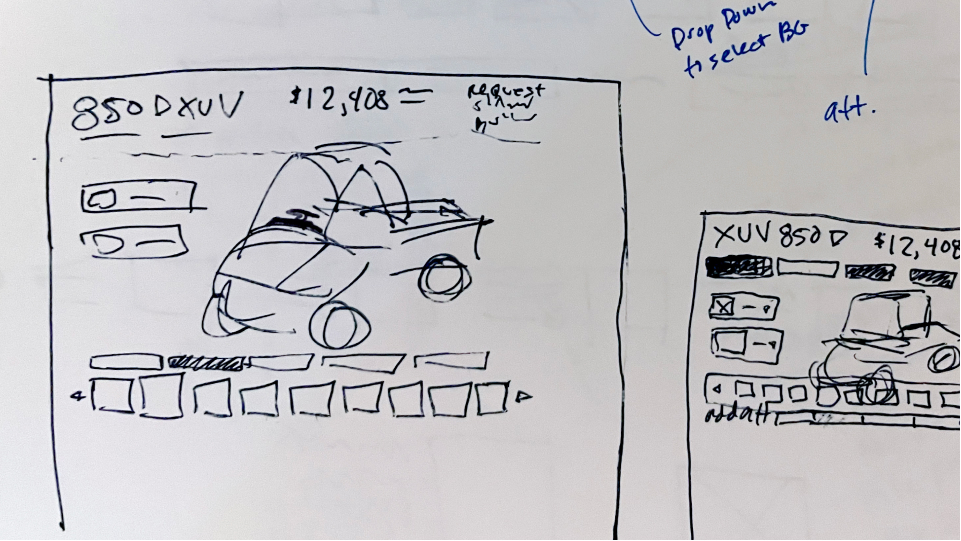 Drop Down
to select BG
att.
850D XUV $12,408
request
XUV 850D $12,408
add att